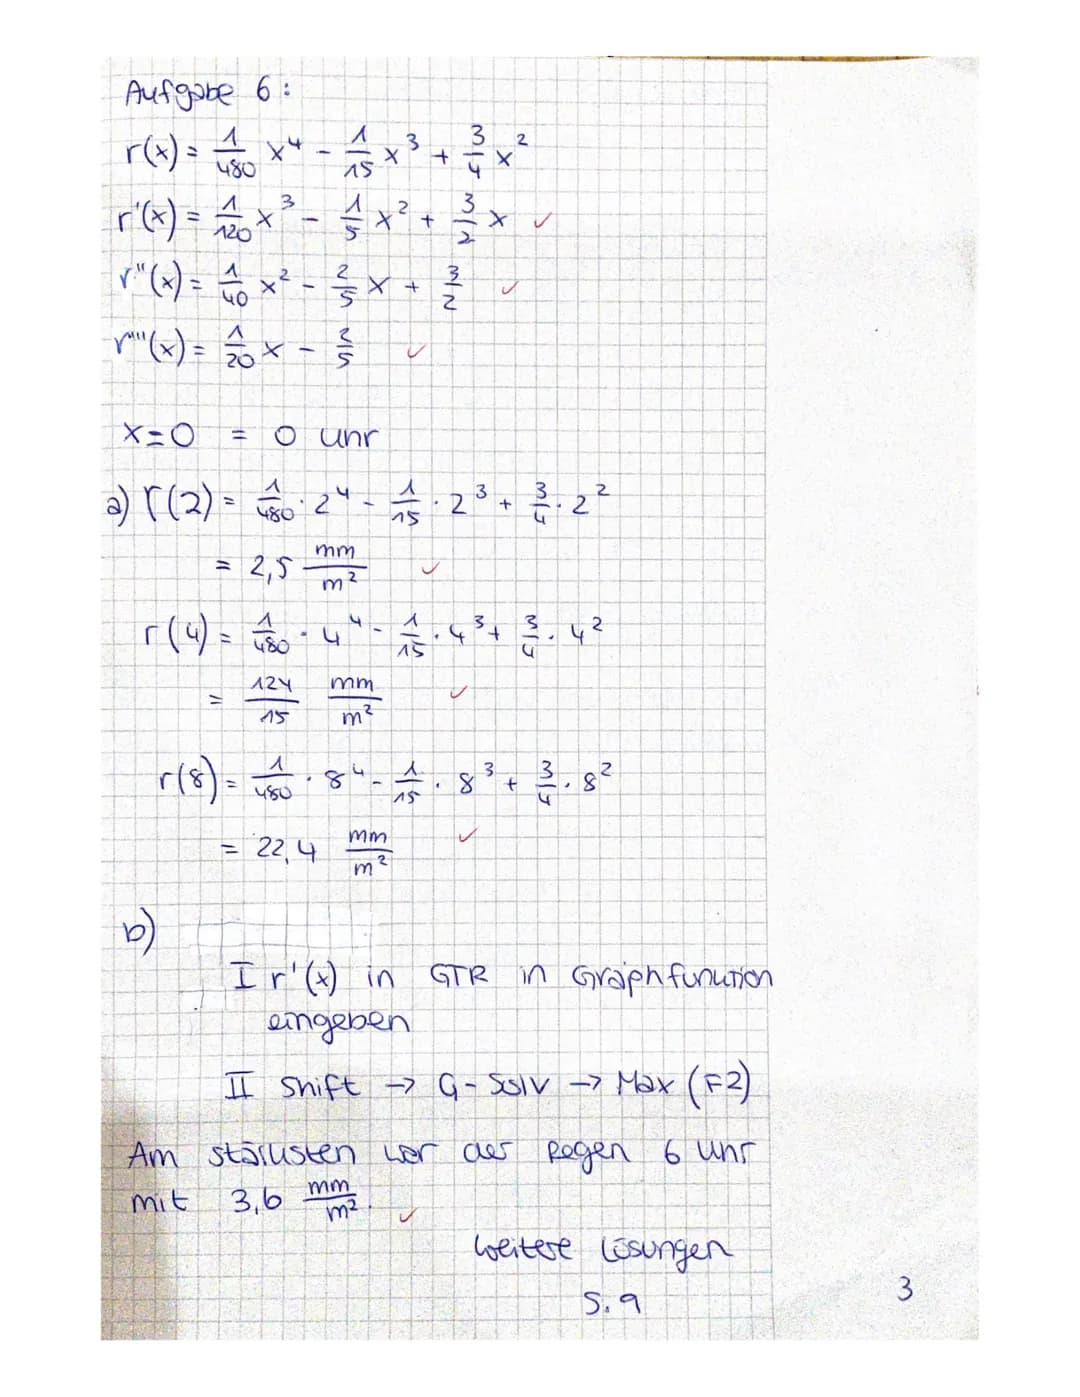 Aufgabe 6:
r(x) = 1/480 x⁴ - 1/15 x³ + 3/4 x²
r'(x) = 1/120 x³ - 1/5 x² + 3/2 x ✓
r''(x) = 1/40 x² - 2/5 x + 3/2 ✓
r'''(x) = 1/20 x - 2/5 ✓
x=0 = 0 Uhr
a) r(2) = 1/480 · 2⁴ - 1/15 · 2³ + 3/4 · 2²
= 2,5 mm/m² ✓
r(4) = 1/480 · 4⁴ - 1/15 · 4³ + 3/4 · 4²
= 124/15 mm/m² ✓
r(8) = 1/480 · 8⁴ - 1/15 · 8³ + 3/4 · 8²
= 22,4 mm/m² ✓
b)
I r'(x) in GTR in Graphfunktion
eingeben
II Shift → G-Solv → Max (F2)
Am stärksten war der Regen 6 Uhr
mit 3,6 mm/m². ✓
Weitere Lösungen
S. 9
3